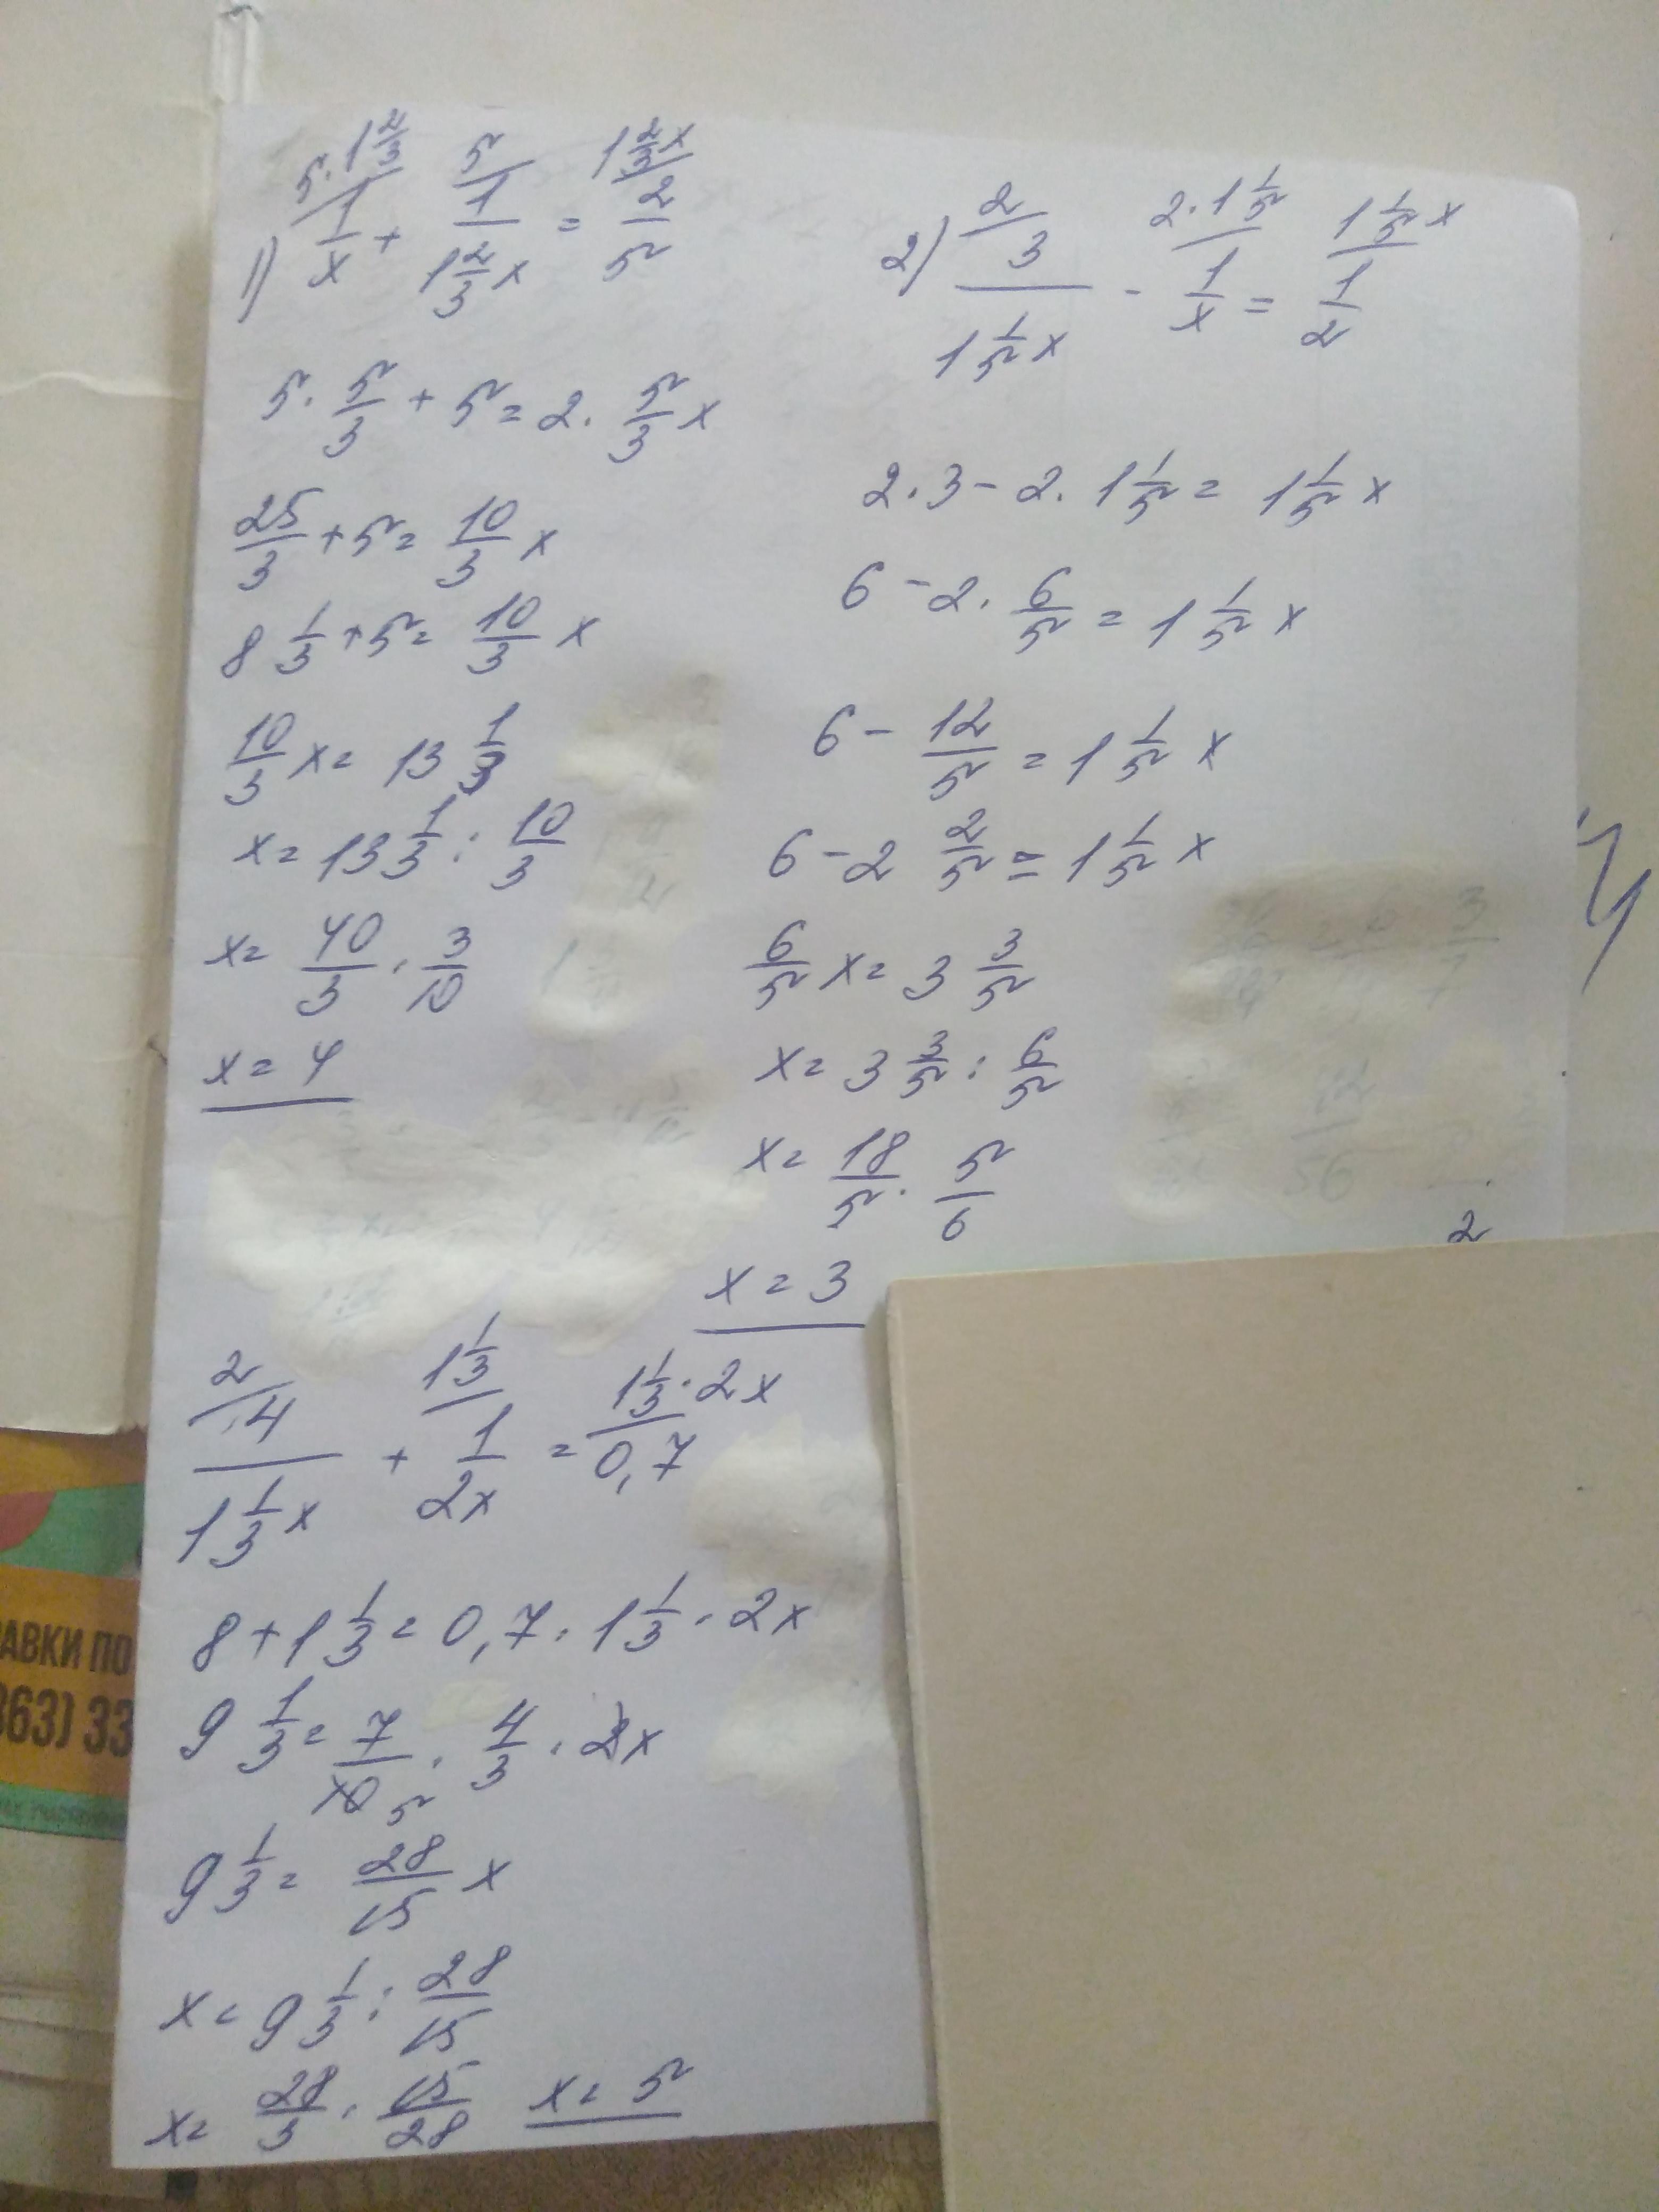 1) 5·1 2/3 / 1/x + 5 / 1/(1 2/3 x) = 1 2/3 x / 2/5
5 · 5/3 + 5 = 2 · 5/3 x
25/3 + 5 = 10/3 x
8 1/3 + 5 = 10/3 x
10/3 x = 13 1/3
x = 13 1/3 : 10/3
x = 40/3 · 3/10
x = 4
2) 2 / 3/(1 1/5 x) - 2·1 1/5 / 1/x = 1 1/5 x / 1/2
2 · 3 - 2 · 1 1/5 = 1 1/5 x
6 - 2 · 6/5 = 1 1/5 x
6 - 12/5 = 1 1/5 x
6 - 2 2/5 = 1 1/5 x
6/5 x = 3 3/5
x = 3 3/5 : 6/5
x = 18/5 · 5/6
x = 3
2 / 4/(1 1/3 x) + 1 1/3 / 1/(2x) = 1 1/3 · 2x / 0,7
8 + 1 1/3 = 0,7 · 1 1/3 · 2x
9 1/3 = 7/10 5 · 4/3 · 2x
9 1/3 = 28/15 x
x = 9 1/3 : 28/15
x = 28/3 · 15/28 x = 5
2
АВКИ ПО
863) 33